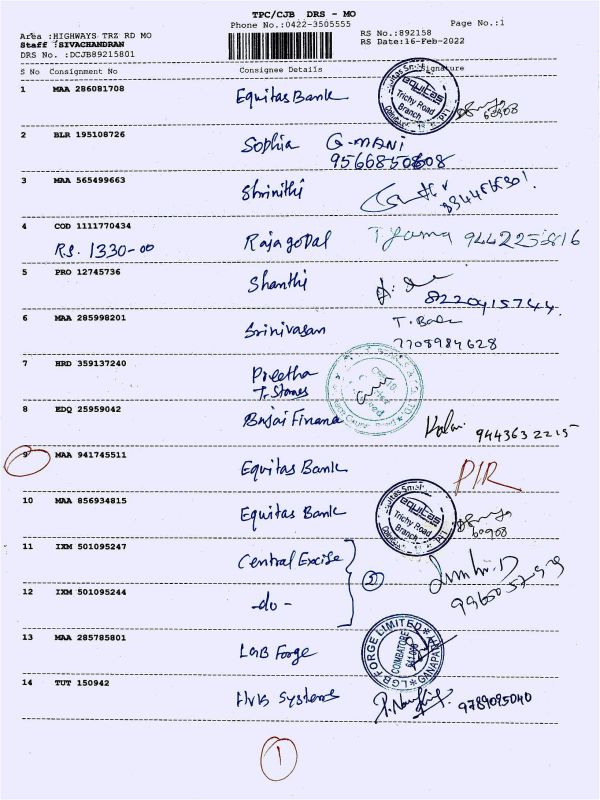 TPC/CJB DRS - MO
Phone No.:0422-3505555
Page No.:1
Area :HIGHWAYS TRZ RD MO
RS No.:892158
Staff :SIVACHANDRAN
RS Date:16-Feb-2022
DRS No. :DCJB89215801
S No Consignment No Consignee Details Signature
1 MAA 286081708 Equitas Bank
equitas
Trichy Road
Branch
60908
2 BLR 195108726 Sophia G-MANI
9566850608
3 MAA 565499663 Shrinithi
4 COD 1111770434
RS. 1330-00 Rajagopal 9442252816
5 PRO 12745736 Shanthi
8220415744
6 MAA 285998201 Srinivasan
7708984628
7 HRD 359137240 Preetha
T. Stores
8 EDQ 25959042 Bajai Finance
9443632215
9 MAA 941745511 Equitas Bank PIR
10 MAA 856934815 Equitas Bank
equitas
Trichy Road
Branch
60908
11 IXM 501095247 Central Excise
12 IXM 501095244 -do-
2
13 MAA 285785801 LGB Forge
LGB FORGE LIMITED
COIMBATORE
GANAPATHY
14 TUT 150942 HVB Systems 9789095040
1